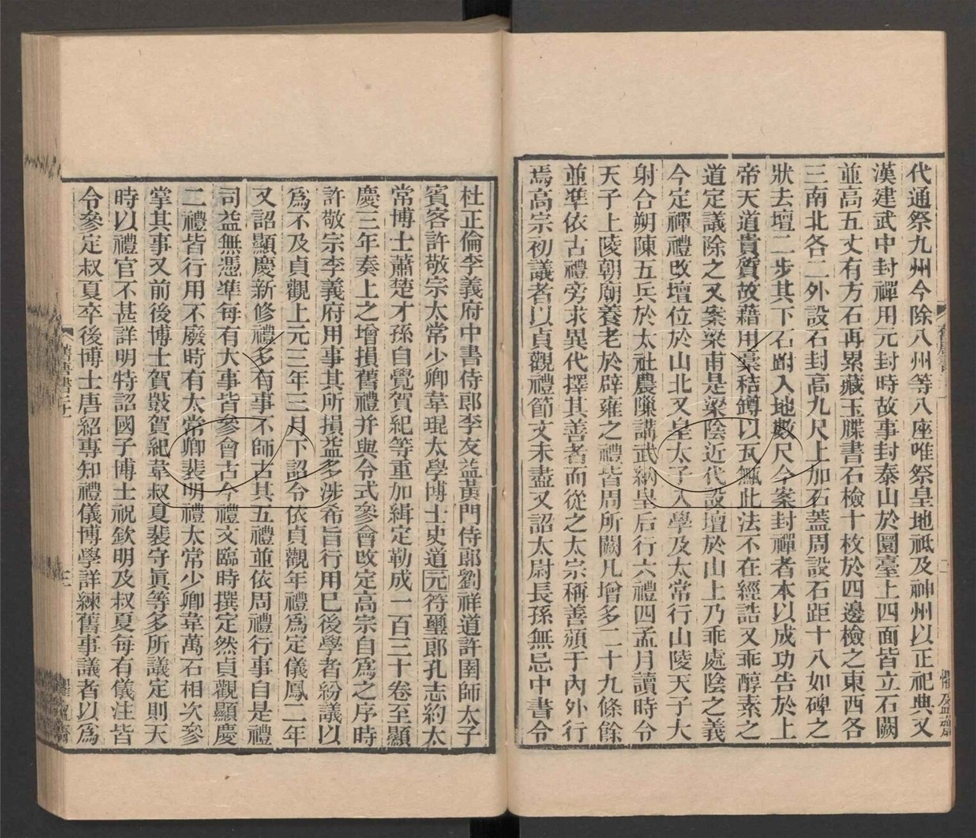 代通祭九州今除八州等八座唯祭皇地祇及神州以正祀典又
漢建武中封禪用元封時故事封泰山於圜臺上四面皆立石闕
並高五丈有方石再累藏玉牒書石檢十枚於四邊檢之東西各
三南北各二外設石封高九尺上加石蓋周設石距十八如碑之
狀去壇二步其下石跗入地數尺今案封禪者本以成功告於上
帝天道貴質故藉用藁秸鐏以瓦甒此法不在經誥又乖醇素之
道定議除之又案梁甫是梁陰近代設壇於山上乃乖處陰之義
今定禪禮改壇位於山北又皇太子入學及太常行山陵天子大
射合朔陳五兵於太社農隟講武納皇后行六禮四孟月讀時令
天子上陵朝廟養老於辟雍之禮皆周所闕凡增多二十九條餘
並準依古禮旁求異代擇其善者而從之太宗稱善頒于內外行
焉高宗初議者以貞觀禮節文未盡又詔太尉長孫無忌中書令
杜正倫李義府中書侍郎李友益黃門侍郎劉祥道許圉師太子
賓客許敬宗太常少卿韋琨太學博士史道元符璽郎孔志約太
常博士蕭楚才孫自覺賀紀等重加緝定勒成一百三十卷至顯
慶三年奏上之增損舊禮并與令式參會改定高宗自為之序時
許敬宗李義府用事其所損益多涉希旨行用已後學者紛議以
爲不及貞觀上元三年三月下詔令依貞觀年禮爲定儀鳳二年
又詔顯慶新修禮多有事不師古其五禮並依周禮行事自是禮
司益無憑準每有大事皆參會古今禮文臨時撰定然貞觀顯慶
二禮皆行用不廢時有太常卿裴明禮太常少卿韋萬石相次參
掌其事又前後博士賀敱賀紀韋叔夏裴守眞等多所議定則天
時以禮官不甚詳明特詔國子博士祝欽明及叔夏每有儀注皆
令參定叔夏卒後博士唐紹專知禮儀博學詳練舊事議者以爲
舊唐書二十一
三